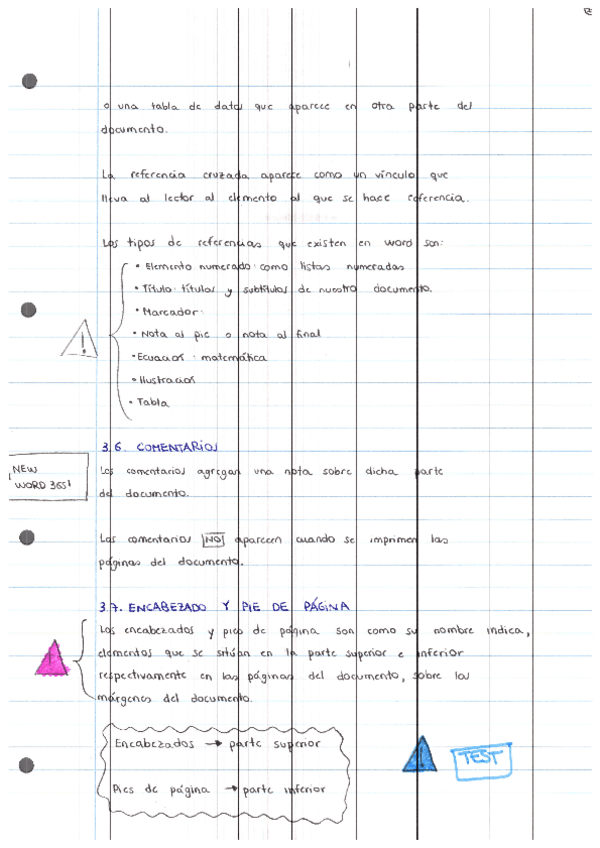 o una tabla de datos que aparece en otra parte del
documento.
La referencia cruzada aparece como un vínculo que
lleva al lector al elemento al que se hace referencia.
Los tipos de referencias que existen en word son:
• Elemento numerado: como listas numeradas
• Título: títulos y subtítulos de nuestro documento.
• Marcador:
• Nota al pie o nota al final
• Ecuación: matemática
• Ilustración
• Tabla
3.6. COMENTARIOS
NEW
WORD 365!
Los comentarios agregan una nota sobre dicha parte
del documento.
Los comentarios NO aparecen cuando se imprimen las
páginas del documento.
3.7. ENCABEZADO Y PIE DE PÁGINA
Los encabezados y pies de página son como su nombre indica,
elementos que se sitúan en la parte superior e inferior
respectivamente en las páginas del documento, sobre los
márgenes del documento.
Encabezados → parte superior
Pies de página → parte inferior
TEST